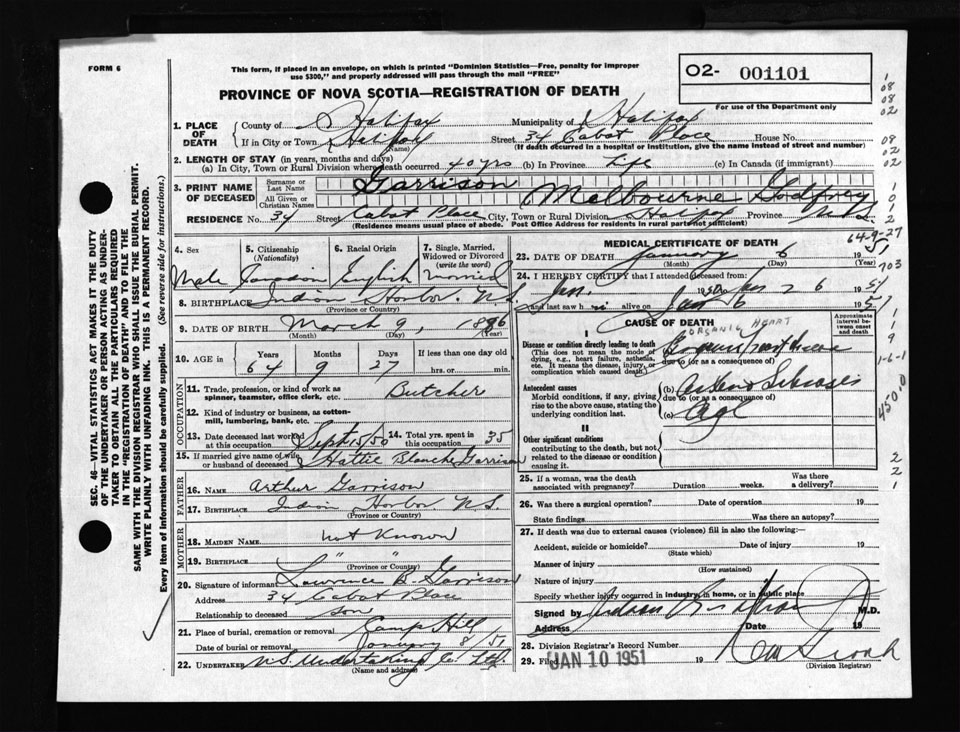 FORM 6
This form, if placed in an envelope, on which is printed "Dominion Statistics—Free, penalty for improper
use $300," and properly addressed will pass through the mail "FREE"
PROVINCE OF NOVA SCOTIA—REGISTRATION OF DEATH
O2- 001101
For use of the Department only
SEC. 46—VITAL STATISTICS ACT MAKES IT THE DUTY
OF THE UNDERTAKER OR PERSON ACTING AS UNDER-
TAKER TO OBTAIN ALL THE PARTICULARS REQUIRED
IN THE "REGISTRATION OF DEATH" AND TO FILE THE
SAME WITH THE DIVISION REGISTRAR WHO SHALL ISSUE THE BURIAL PERMIT.
WRITE PLAINLY WITH UNFADING INK. THIS IS A PERMANENT RECORD.
Every item of information should be carefully supplied. (See reverse side for instructions.)
1. PLACE OF DEATH County of Halifax Municipality of Halifax
If in City or Town Halifax (Name) Street 34 Cabot Place House No.
(If death occurred in a hospital or institution, give the name instead of street and number)
2. LENGTH OF STAY (in years, months and days)
(a) In City, Town or Rural Division where death occurred 40 yrs (b) In Province Life (c) In Canada (if immigrant)
3. PRINT NAME OF DECEASED Surname or Last Name Garrison
All Given or Christian Names Melbourne Godfrey
RESIDENCE No. 34 Street Cabot Place City, Town or Rural Division Halifax Province N.S.
(Residence means usual place of abode. Post Office Address for residents in rural parts not sufficient)
4. Sex Male
5. Citizenship (Nationality) Canadian
6. Racial Origin English
7. Single, Married, Widowed or Divorced (write the word) Married
8. BIRTHPLACE Indian Harbor N.S.
(Province or Country)
9. DATE OF BIRTH March 9, 1886
(Month) (Day) (Year)
10. AGE in Years 64 Months 9 Days 27 If less than one day old hrs. or min.
OCCUPATION
11. Trade, profession, or kind of work as spinner, teamster, office clerk, etc. Butcher
12. Kind of industry or business, as cotton-mill, lumbering, bank, etc.
13. Date deceased last worked at this occupation Sept 15/50 14. Total yrs. spent in this occupation 35
15. If married give name of wife or husband of deceased Hattie Blanche Garrison
FATHER
16. NAME Arthur Garrison
17. BIRTHPLACE Indian Harbor N.S.
(Province or Country)
MOTHER
18. MAIDEN NAME not Known
19. BIRTHPLACE " "
(Province or Country)
20. Signature of informant Lawrence B. Garrison
Address 34 Cabot Place
Relationship to deceased son
21. Place of burial, cremation or removal Camp Hill
Date of burial or removal January 8/51
22. UNDERTAKER N.S. Undertaking Co. Ltd.
(Name and address)
MEDICAL CERTIFICATE OF DEATH
64-9-27
23. DATE OF DEATH January 6 19 51
(Month) (Day) (Year)
24. I HEREBY CERTIFY that I attended deceased from:
Jan 6 19 51
and last saw h im alive on Jan 6 19 51
I CAUSE OF DEATH
Approximate interval between onset and death
ORGANIC HEART
Disease or condition directly leading to death
(This does not mean the mode of dying, e.g., heart failure, asthenia, etc. It means the disease, injury, or complication which caused death.)
due to (or as a consequence of)
Antecedent causes
Morbid conditions, if any, giving rise to the above cause, stating the underlying condition last.
(b)
due to (or as a consequence of)
(c) Age
II
Other significant conditions contributing to the death, but not related to the disease or condition causing it.
25. If a woman, was the death associated with pregnancy? Duration weeks. Was there a delivery?
26. Was there a surgical operation? Date of operation 19
State findings Was there an autopsy?
27. If death was due to external causes (violence) fill in also the following:—
Accident, suicide or homicide? Date of injury 19
(State which)
Manner of injury
(How sustained)
Nature of injury
Specify whether injury occurred in industry, in home, or in public place
Signed by M.D.
Address Date 19
28. Division Registrar's Record Number
29. Filed JAN 10 1951 19
(Division Registrar)